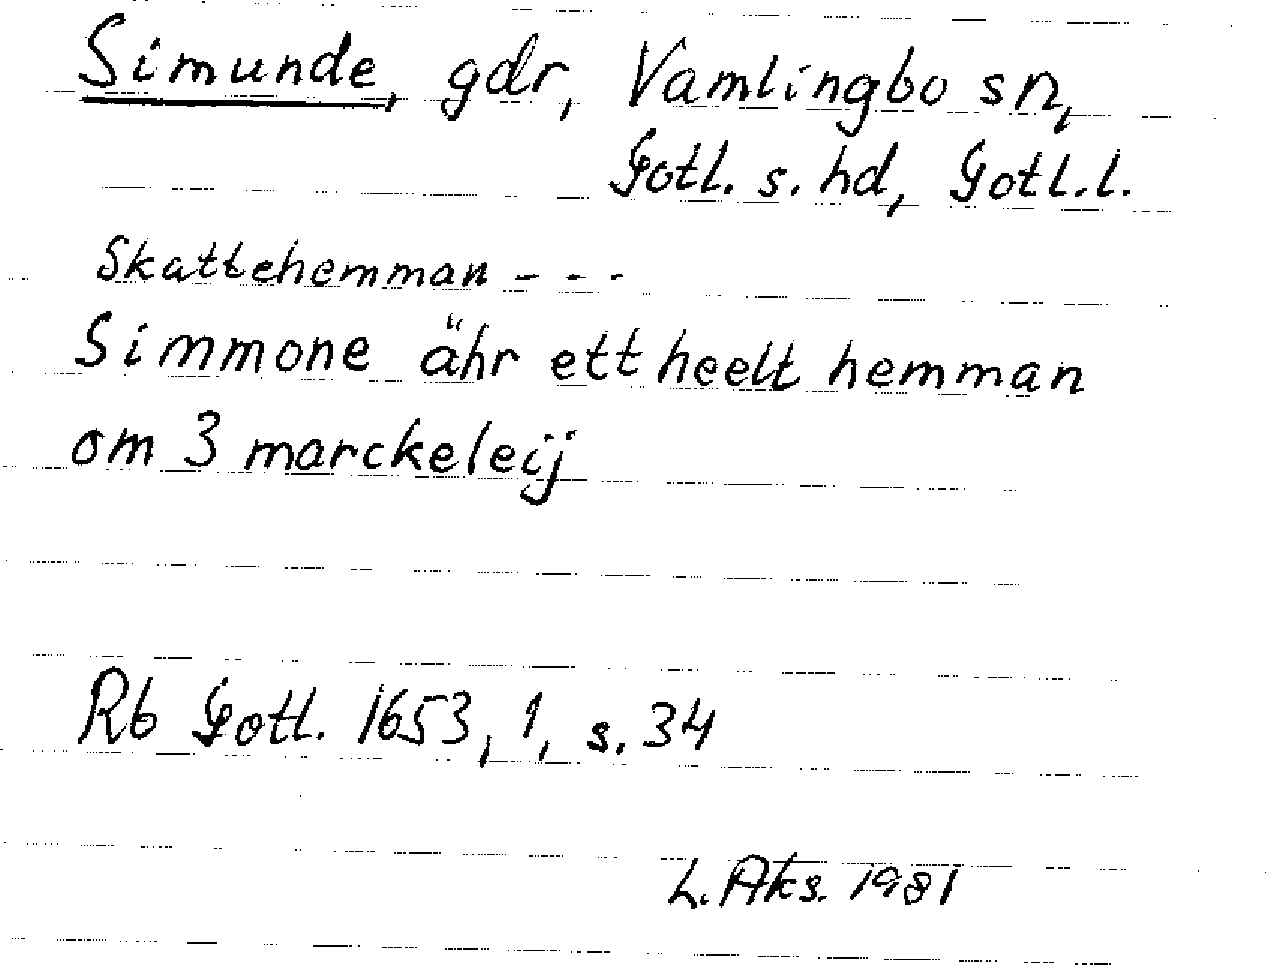 Simunde, gdr, Vamlingbo sn,
Gotl. s. hd, Gotl.l.
Skattehemman - - -
Simmone ähr ett heelt hemman
om 3 marckeleij
Rb Gotl. 1653, 1, s. 34
L. Aks. 1981